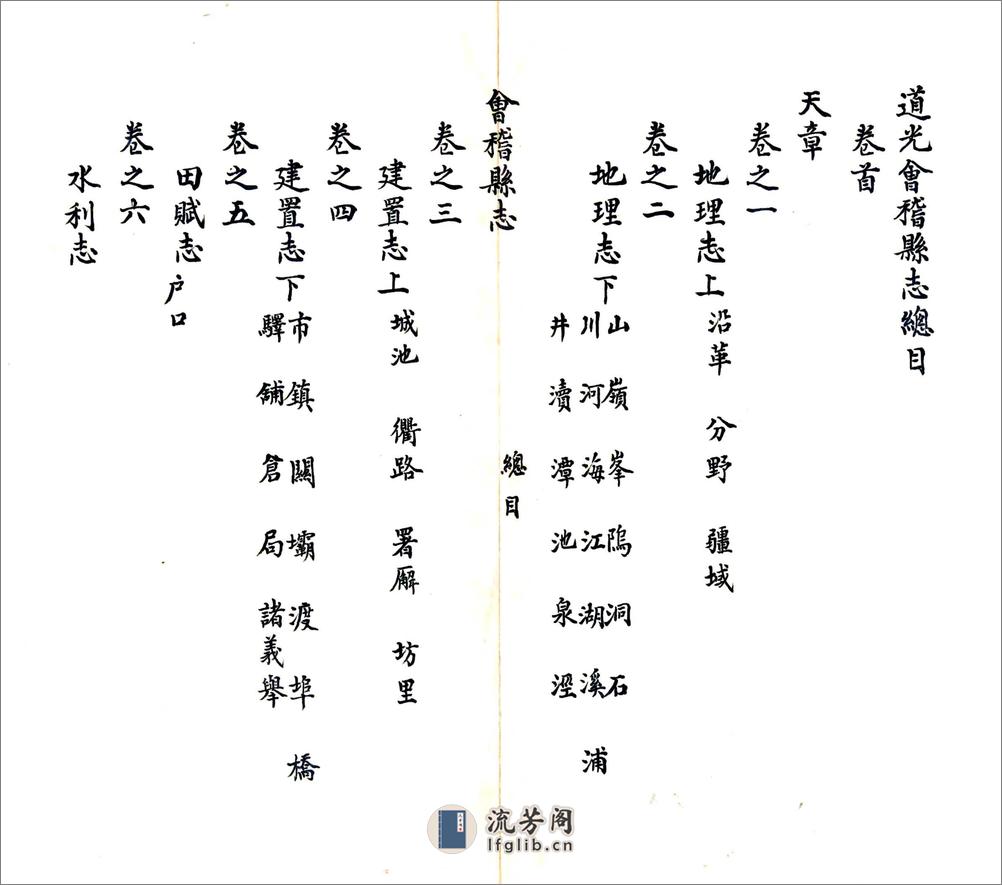 道光會稽縣志總目
卷首
天章
卷之一
地理志上 沿革 分野 疆域
卷之二
地理志下 山 嶺 峯 隖 洞 石
川 河 海 江 湖 溪 浦
井 瀆 潭 池 泉 涇
會稽縣志 總目
卷之三
建置志上 城池 衢路 署廨 坊里
卷之四
建置志下 市 鎮 關 壩 渡 埠 橋
驛 舖 倉 局 諸義舉
卷之五
田賦志 户口
卷之六
水利志
流芳阁
lfglib.cn